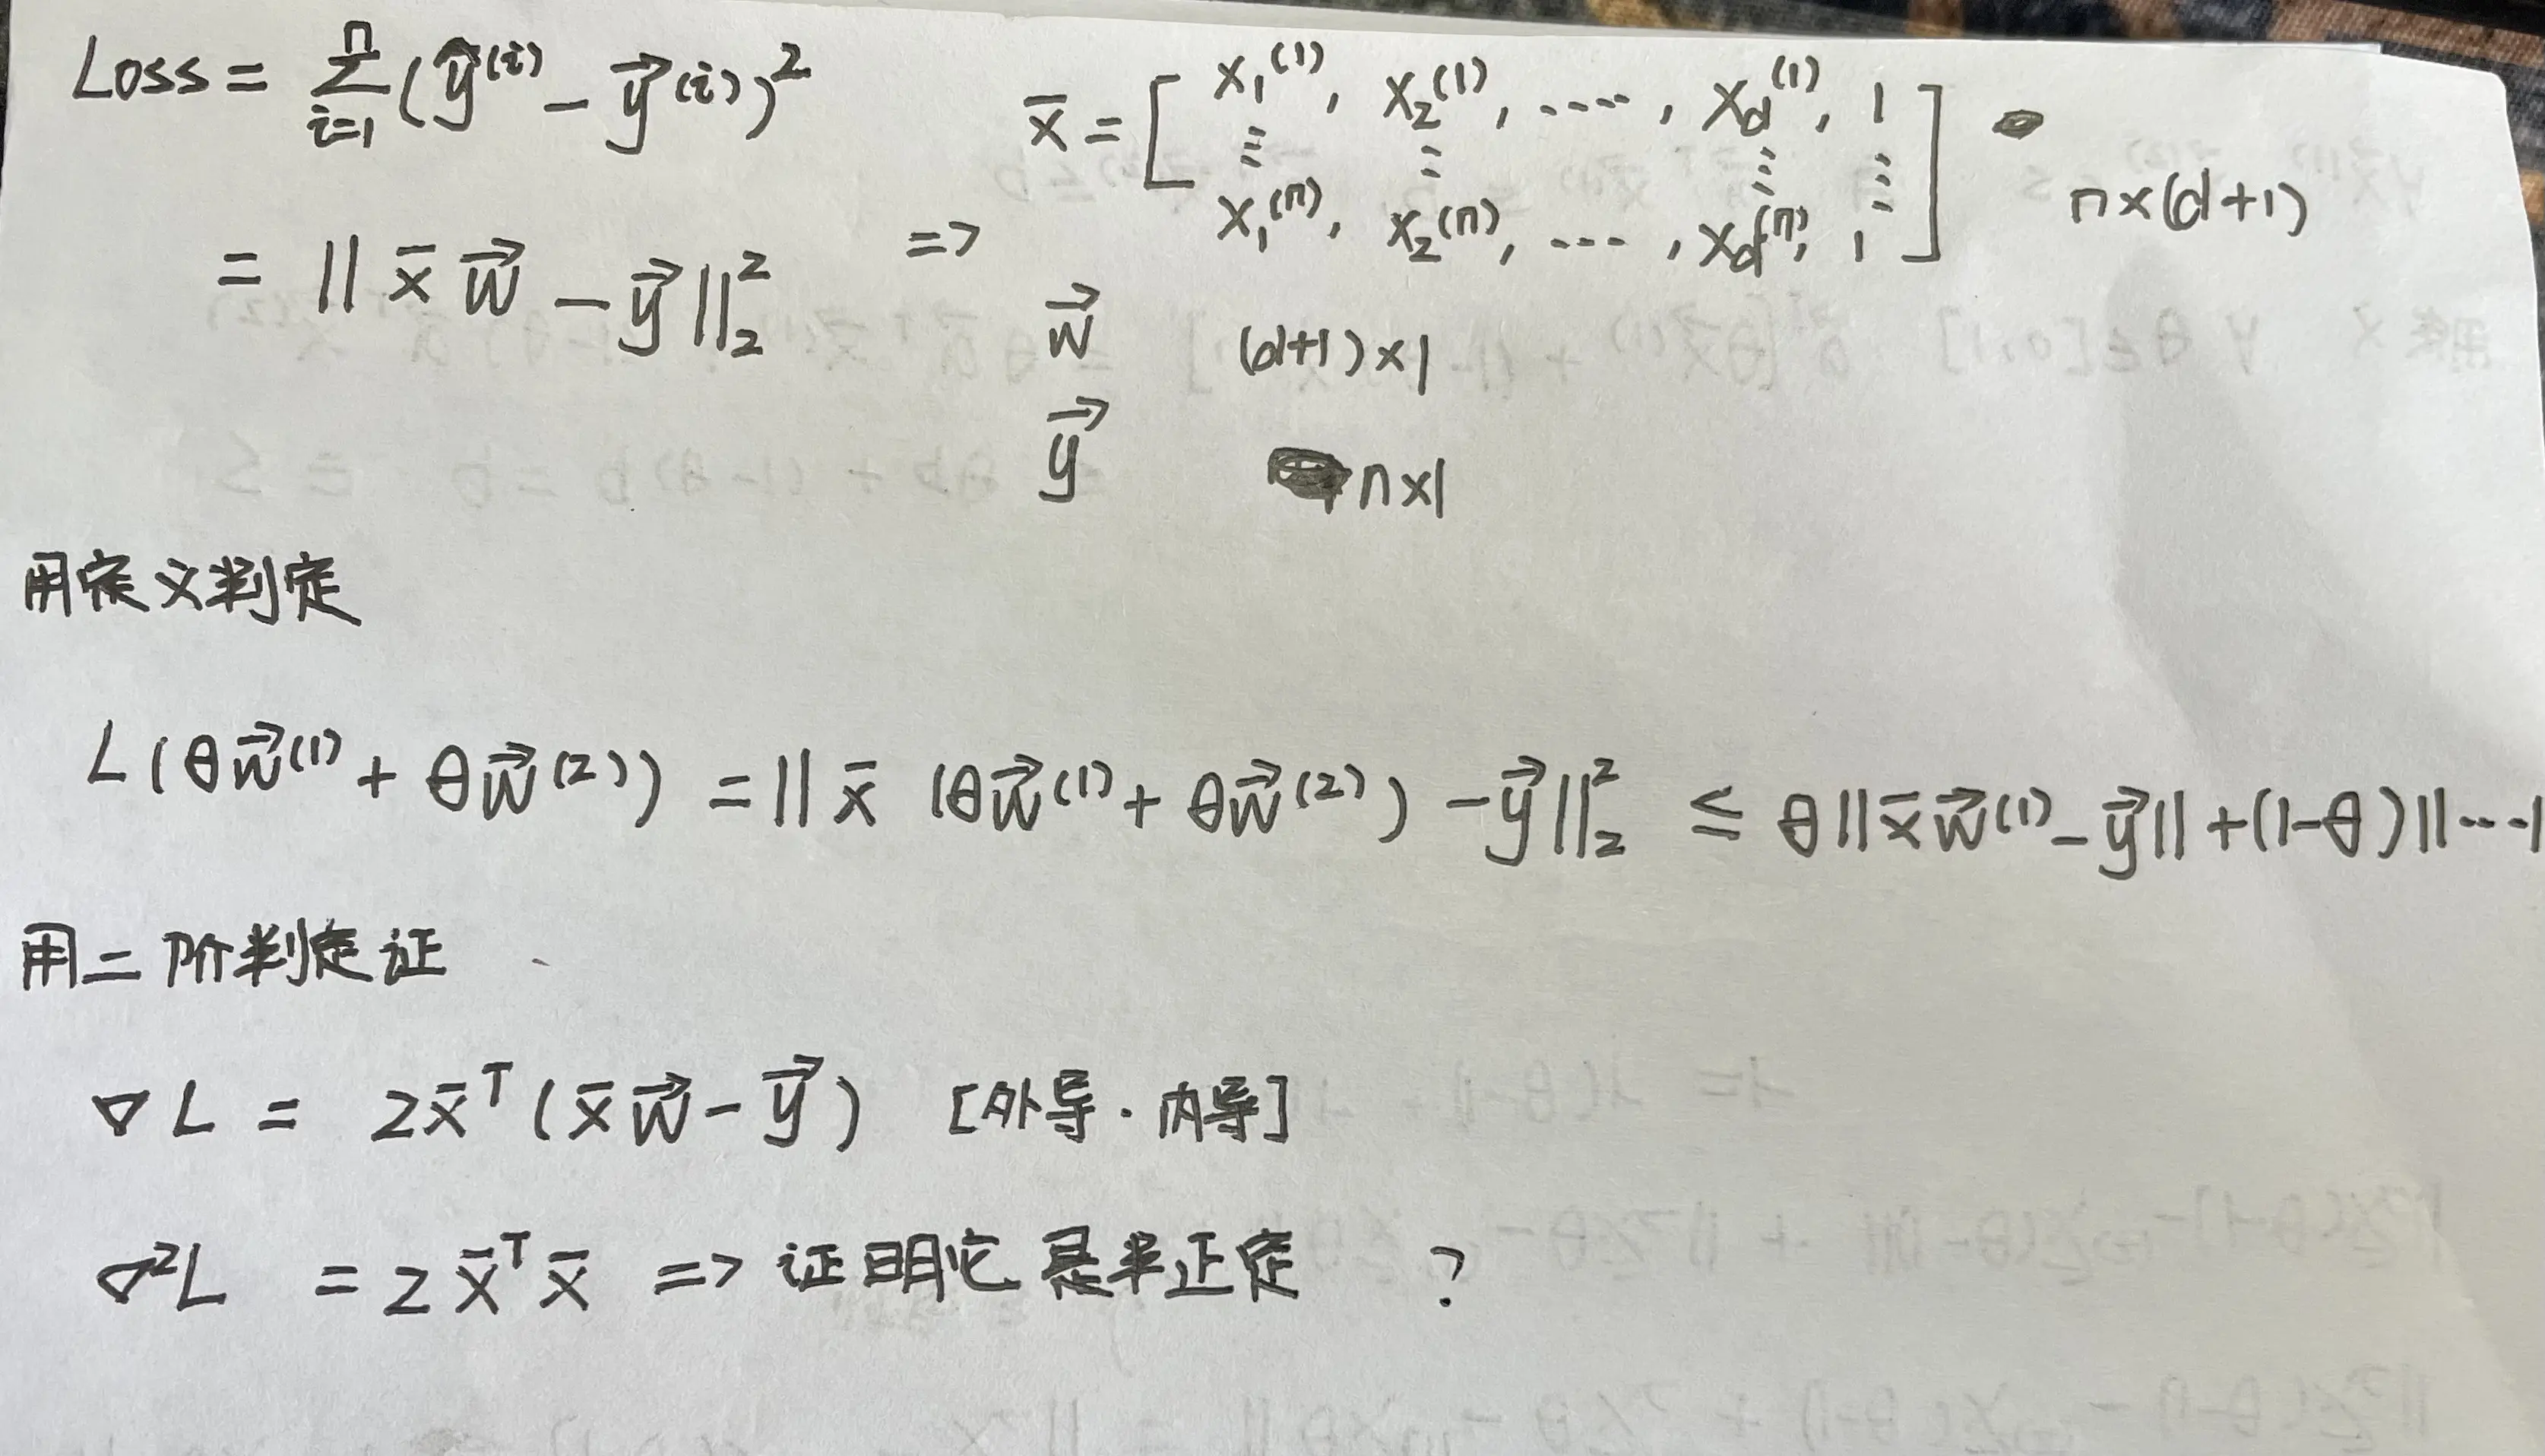 Loss = Σ_{i=1}^{n} (ŷ^(i) - y⃗^(i))²
= || x̄ w⃗ - y⃗ ||₂²
=> x̄ = [ x₁^(1), x₂^(1), ...., x_d^(1), 1
⋮ ⋮ ⋮ ⋮
x₁^(n), x₂^(n), ..., x_d^(n), 1 ] n×(d+1)
w⃗ (d+1)×1
y⃗ n×1
用定义判定
L(θw⃗^(1) + θw⃗^(2)) = || x̄ (θw⃗^(1) + θw⃗^(2)) - y⃗ ||₂² ≤ θ|| x̄w⃗^(1) - y⃗ || + (1-θ)||...|
用二阶判定证
∇L = 2x̄ᵀ(x̄w⃗ - y⃗) [外导·内导]
∇²L = 2x̄ᵀx̄ => 证明它是半正定 ?